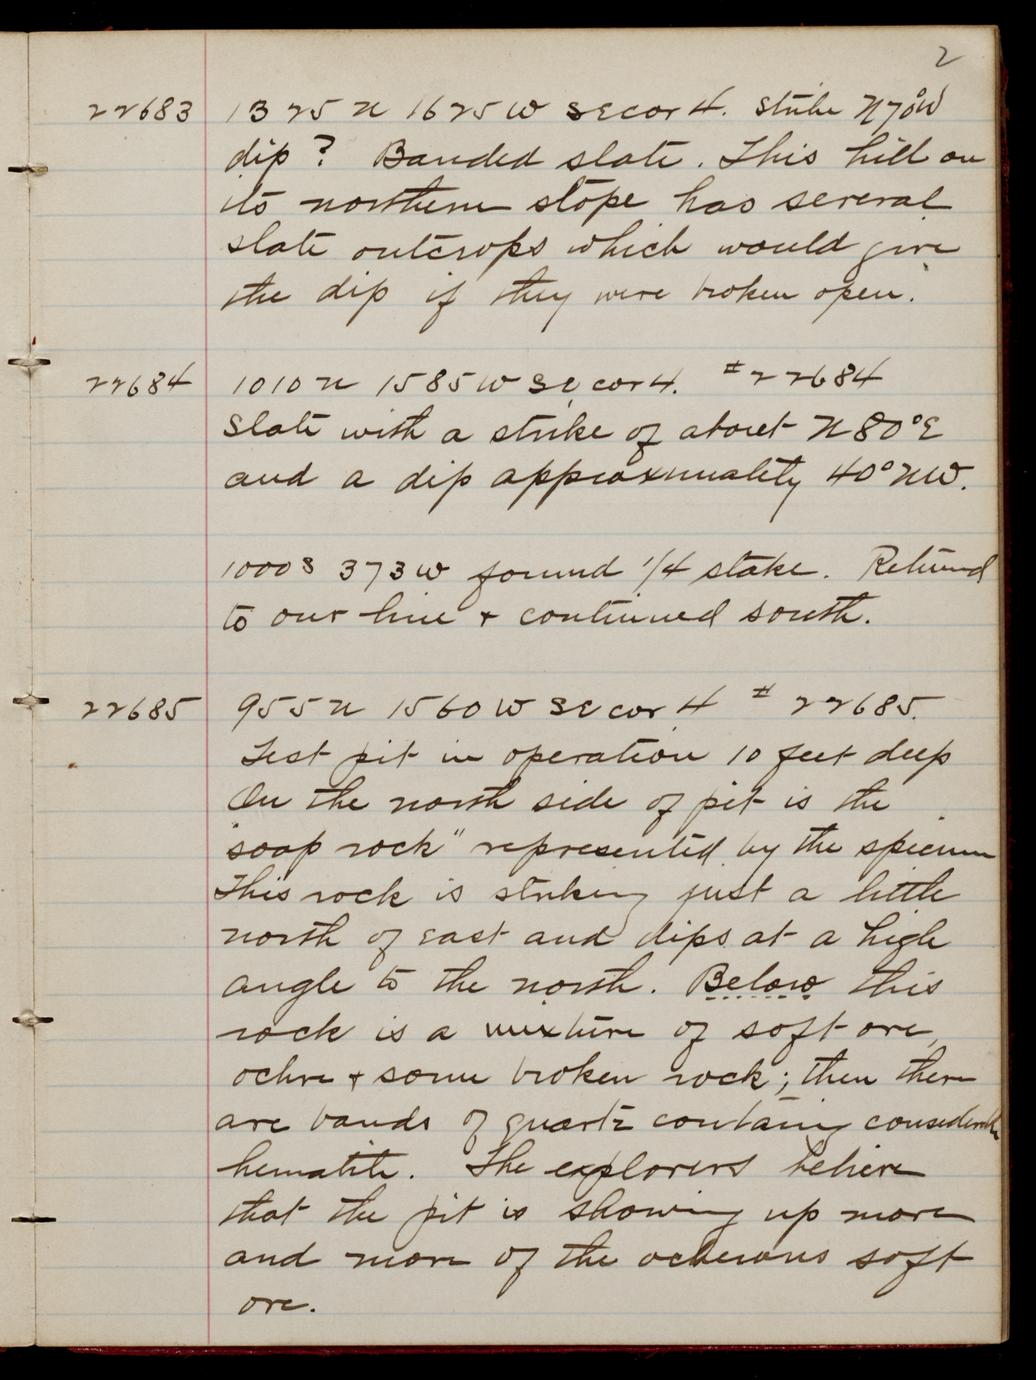 2
22683 1325 N 1625 W SE cor 4. Strike N70°W
dip? Banded slate. This hill on
its northern slope has several
slate outcrops which would give
the dip if they were broken open.
22684 1010 N 1585 W SE cor 4. #22684
Slate with a strike of about N80°E
and a dip approximately 40° NW.
1000 S 373 W found 1/4 stake. Returned
to our line + continued south.
22685 955 N 1560 W SE cor 4 # 22685.
Test pit in operation 10 feet deep
On the north side of pit is the
"soap rock" represented by the specimen
This rock is striking just a little
north of east and dips at a high
angle to the north. Below this
rock is a mixture of soft ore,
ochre + some broken rock; then there
are bands of quartz containing considerable
hematite. The explorers believe
that the pit is showing up more
and more of the ocherous soft
ore.